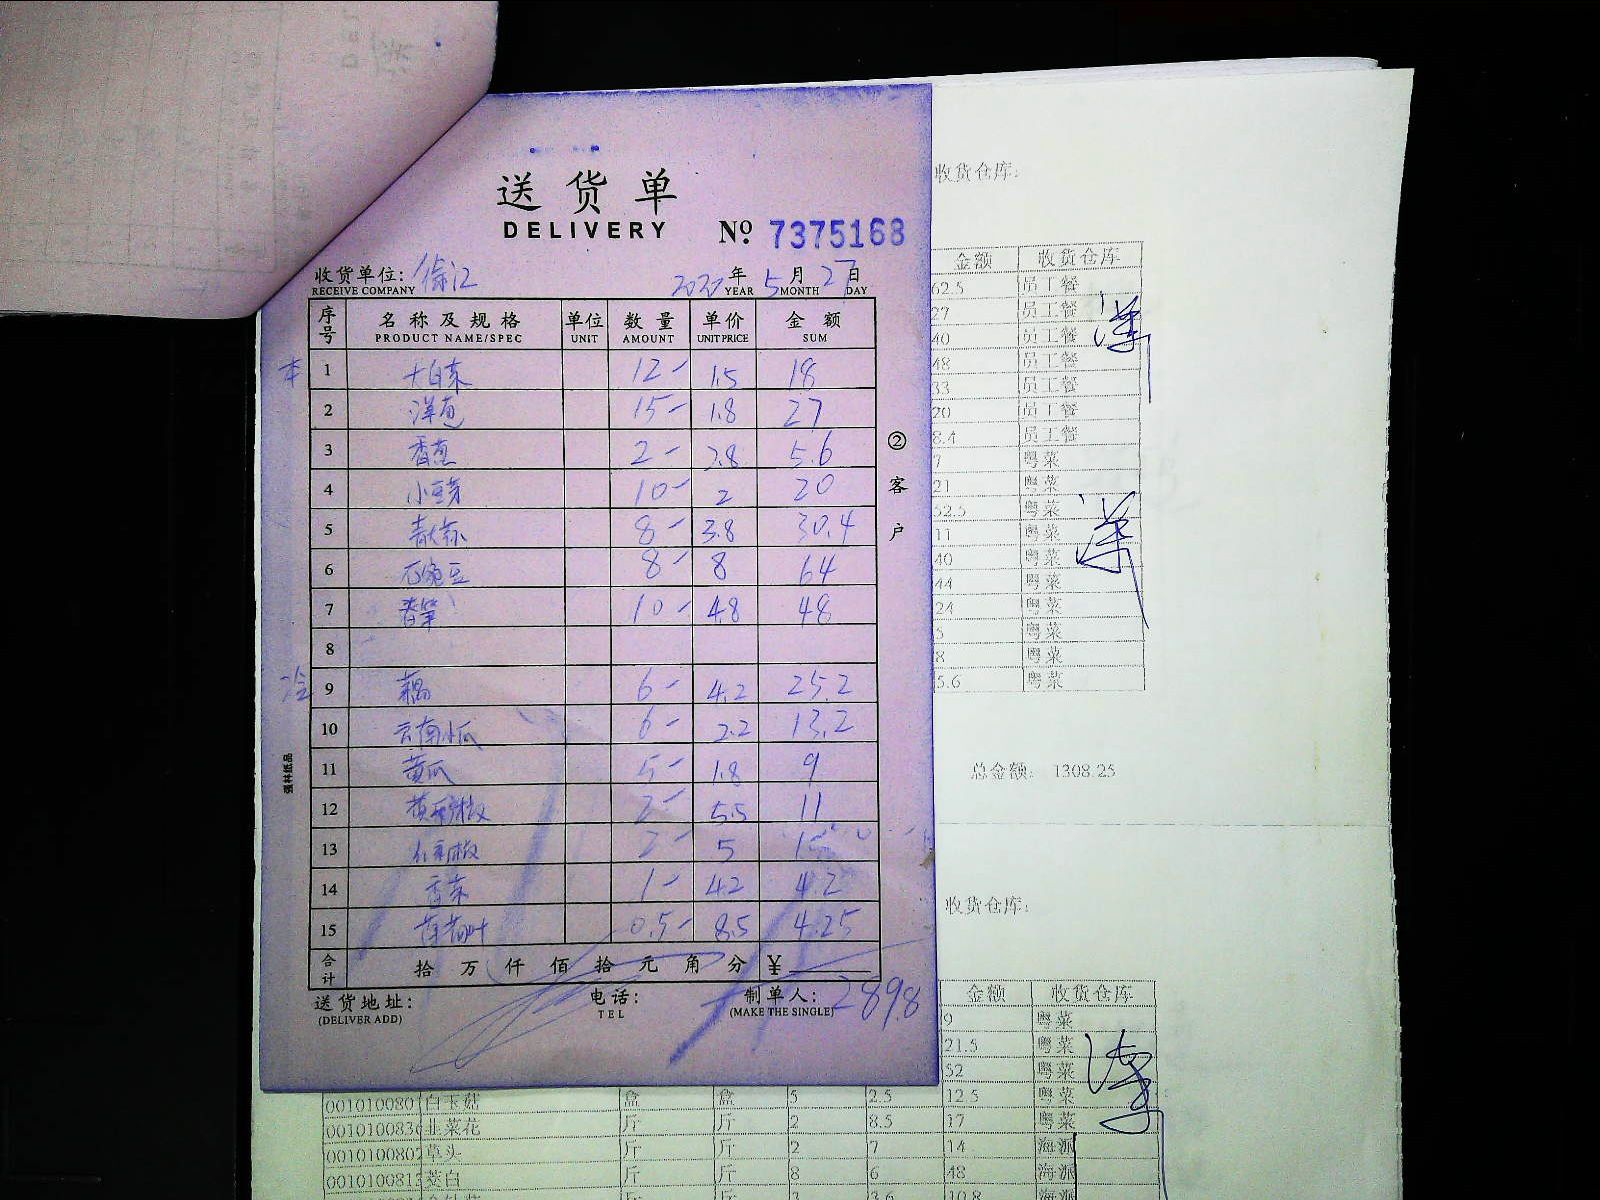 送货单
DELIVERY
№ 7375168
收货单位: 徐汇 2020年5月27日
RECEIVE COMPANY YEAR MONTH DAY
序号 名称及规格 单位 数量 单价 金额
PRODUCT NAME/SPEC UNIT AMOUNT UNIT PRICE SUM
本 1 大白菜 12- 1.5 18
2 洋葱 15- 1.8 27
3 香葱 2- 2.8 5.6
4 小豆芽 10- 2 20
5 8- 3.8 30.4
6 8- 8 64
7 10- 4.8 48
8
冷 9 藕 6- 4.2 25.2
10 云南小瓜 6- 2.2 13.2
11 黄瓜 5- 1.8 9
12 2- 5.5 11
13 2- 5
14 香菜 1- 4.2 4.2
15 薄荷叶 0.5- 8.5 4.25
合计 拾 万 仟 佰 拾 元 角 分 ¥
289.8
送货地址: 电话: 制单人:
(DELIVER ADD) TEL (MAKE THE SINGLE)
②客户
强林纸品
收货仓库:
金额 收货仓库
62.5 员工餐
27 员工餐
40 员工餐
48 员工餐
33 员工餐
20 员工餐
8.4 员工餐
7 粤菜
21 粤菜
52.5 粤菜
11 粤菜
40 粤菜
44 粤菜
24 粤菜
5 粤菜
8 粤菜
5.6 粤菜
总金额: 1308.25
收货仓库:
金额 收货仓库
9 粤菜
21.5 粤菜
52 粤菜
001010080 白玉菇 盒 盒 5 2.5 12.5 粤菜
001010083 韭菜花 斤 斤 2 8.5 17 粤菜
001010080 草头 斤 斤 2 7 14 海派
001010081 茭白 斤 斤 8 6 48 海派
3.6 10.8 海派